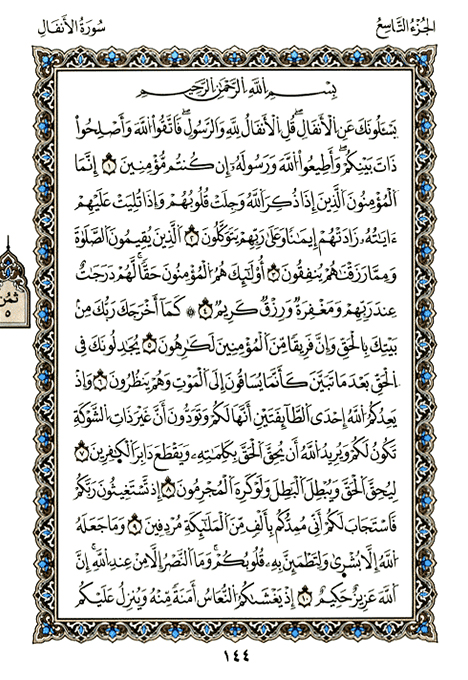 الجزء التاسع
سورة الأنفال
بِسْمِ اللَّهِ الرَّحْمَٰنِ الرَّحِيمِ
يَسْـَٔلُونَكَ عَنِ الْأَنفَالِ ۖ قُلِ الْأَنفَالُ لِلَّهِ وَالرَّسُولِ ۖ فَاتَّقُوا اللَّهَ وَأَصْلِحُوا
ذَاتَ بَيْنِكُمْ ۖ وَأَطِيعُوا اللَّهَ وَرَسُولَهُ إِن كُنتُم مُّؤْمِنِينَ ١ إِنَّمَا
الْمُؤْمِنُونَ الَّذِينَ إِذَا ذُكِرَ اللَّهُ وَجِلَتْ قُلُوبُهُمْ وَإِذَا تُلِيَتْ عَلَيْهِمْ
ءَايَٰتُهُ زَادَتْهُمْ إِيمَٰنًا وَعَلَىٰ رَبِّهِمْ يَتَوَكَّلُونَ ٢ الَّذِينَ يُقِيمُونَ الصَّلَوٰةَ
وَمِمَّا رَزَقْنَٰهُمْ يُنفِقُونَ ٣ أُو۟لَٰٓئِكَ هُمُ الْمُؤْمِنُونَ حَقًّا ۚ لَّهُمْ دَرَجَٰتٌ
عِندَ رَبِّهِمْ وَمَغْفِرَةٌ وَرِزْقٌ كَرِيمٌ ٤ ۞ كَمَا أَخْرَجَكَ رَبُّكَ مِنۢ
بَيْتِكَ بِالْحَقِّ وَإِنَّ فَرِيقًا مِّنَ الْمُؤْمِنِينَ لَكَٰرِهُونَ ٥ يُجَٰدِلُونَكَ فِي
الْحَقِّ بَعْدَ مَا تَبَيَّنَ كَأَنَّمَا يُسَاقُونَ إِلَى الْمَوْتِ وَهُمْ يَنظُرُونَ ٦ وَإِذْ
يَعِدُكُمُ اللَّهُ إِحْدَى الطَّآئِفَتَيْنِ أَنَّهَا لَكُمْ وَتَوَدُّونَ أَنَّ غَيْرَ ذَاتِ الشَّوْكَةِ
تَكُونُ لَكُمْ وَيُرِيدُ اللَّهُ أَن يُحِقَّ الْحَقَّ بِكَلِمَٰتِهِ وَيَقْطَعَ دَابِرَ الْكَٰفِرِينَ ٧
لِيُحِقَّ الْحَقَّ وَيُبْطِلَ الْبَٰطِلَ وَلَوْ كَرِهَ الْمُجْرِمُونَ ٨ إِذْ تَسْتَغِيثُونَ رَبَّكُمْ
فَاسْتَجَابَ لَكُمْ أَنِّي مُمِدُّكُم بِأَلْفٍ مِّنَ الْمَلَٰٓئِكَةِ مُرْدِفِينَ ٩ وَمَا جَعَلَهُ
اللَّهُ إِلَّا بُشْرَىٰ وَلِتَطْمَئِنَّ بِهِ قُلُوبُكُمْ ۚ وَمَا النَّصْرُ إِلَّا مِنْ عِندِ اللَّهِ ۚ إِنَّ
اللَّهَ عَزِيزٌ حَكِيمٌ ١٠ إِذْ يَغْشَىٰكُمُ النُّعَاسُ أَمَنَةً مِّنْهُ وَيُنَزِّلُ عَلَيْكُم
ثمن
٥
١٤٤